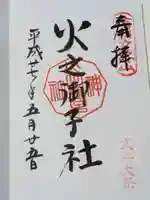 奉拝
火之御子社
平成廿七年五月廿五日